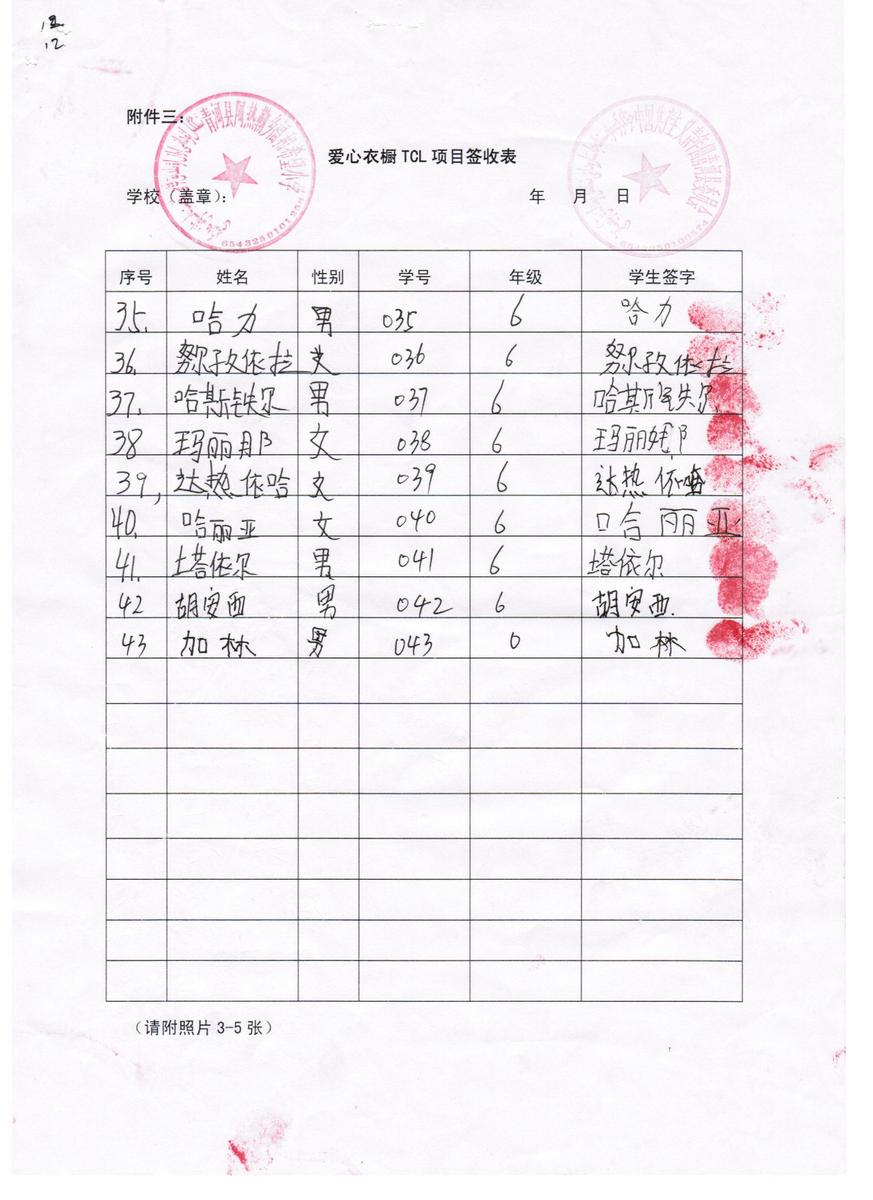 12
附件三:
爱心衣橱 TCL 项目签收表
学校（盖章）： 年 月 日
6543250101258
序号 姓名 性别 学号 年级 学生签字
35. 哈力 男 035 6 哈力
36. 努尔孜依拉 女 036 6 努尔孜依拉
37. 哈斯铁尔 男 037 6 哈斯铁尔
38 玛丽那 女 038 6 玛丽娜
39, 达热依哈 女 039 6 达热依
40. 哈丽亚 女 040 6 哈丽亚
41. 塔依尔 男 041 6 塔依尔
42 胡安西 男 042 6 胡安西.
43 加林 男 043 0 加林
（请附照片 3-5 张）